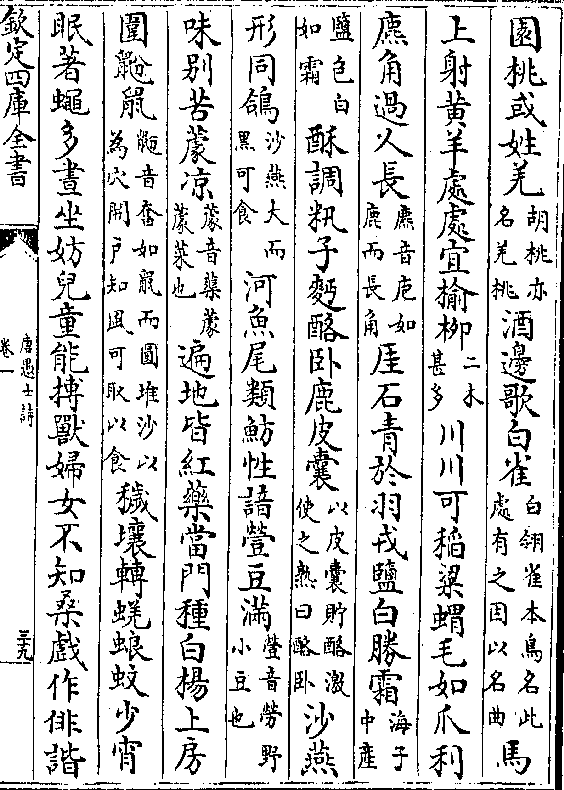 園桃或姓羌胡桃亦名羌桃酒邊歌白雀白翎雀本鳥名此處有之因以名曲馬
上射黄羊處處宜榆柳二木甚多川川可稻粱蝟毛如爪利
麃角過人長麃音庖如鹿而長角厓石青於羽戎鹽白勝霜海子中產
鹽色白如霜酥調籸子麫酪卧鹿皮囊以皮囊貯酪激使之熟曰酪卧沙燕
形同鴿沙燕大而黑可食河魚尾類魴性諳䝁豆滿䝁音勞野小豆也
味别苦凉菜也遍地皆紅藥當門種白楊上房
圍鼢鼠鼢音奮如鼠而圓堆沙以為穴開戶知風可取以食穢壤轉蜣蜋蚊少宵
眠著蠅多晝坐妨兒童能搏獸婦女不知桑戲作俳諧
欽定四庫全書
唐愚士詩
卷一
三九